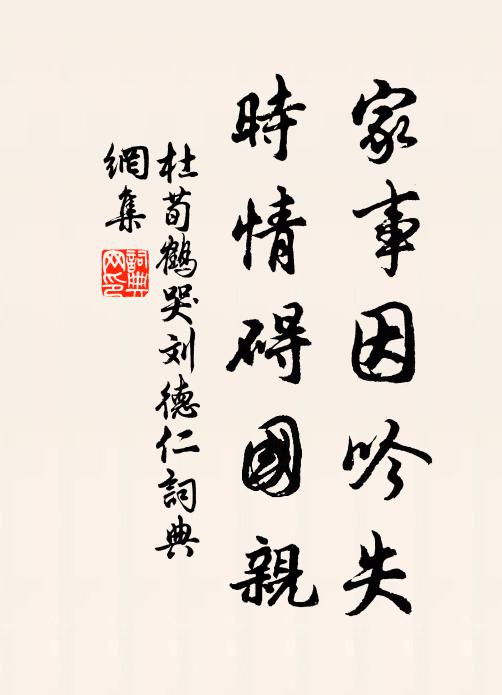 家事因吟失
時情碍國親
杜荀鶴哭刘德仁詞典
網集
詞典
网印